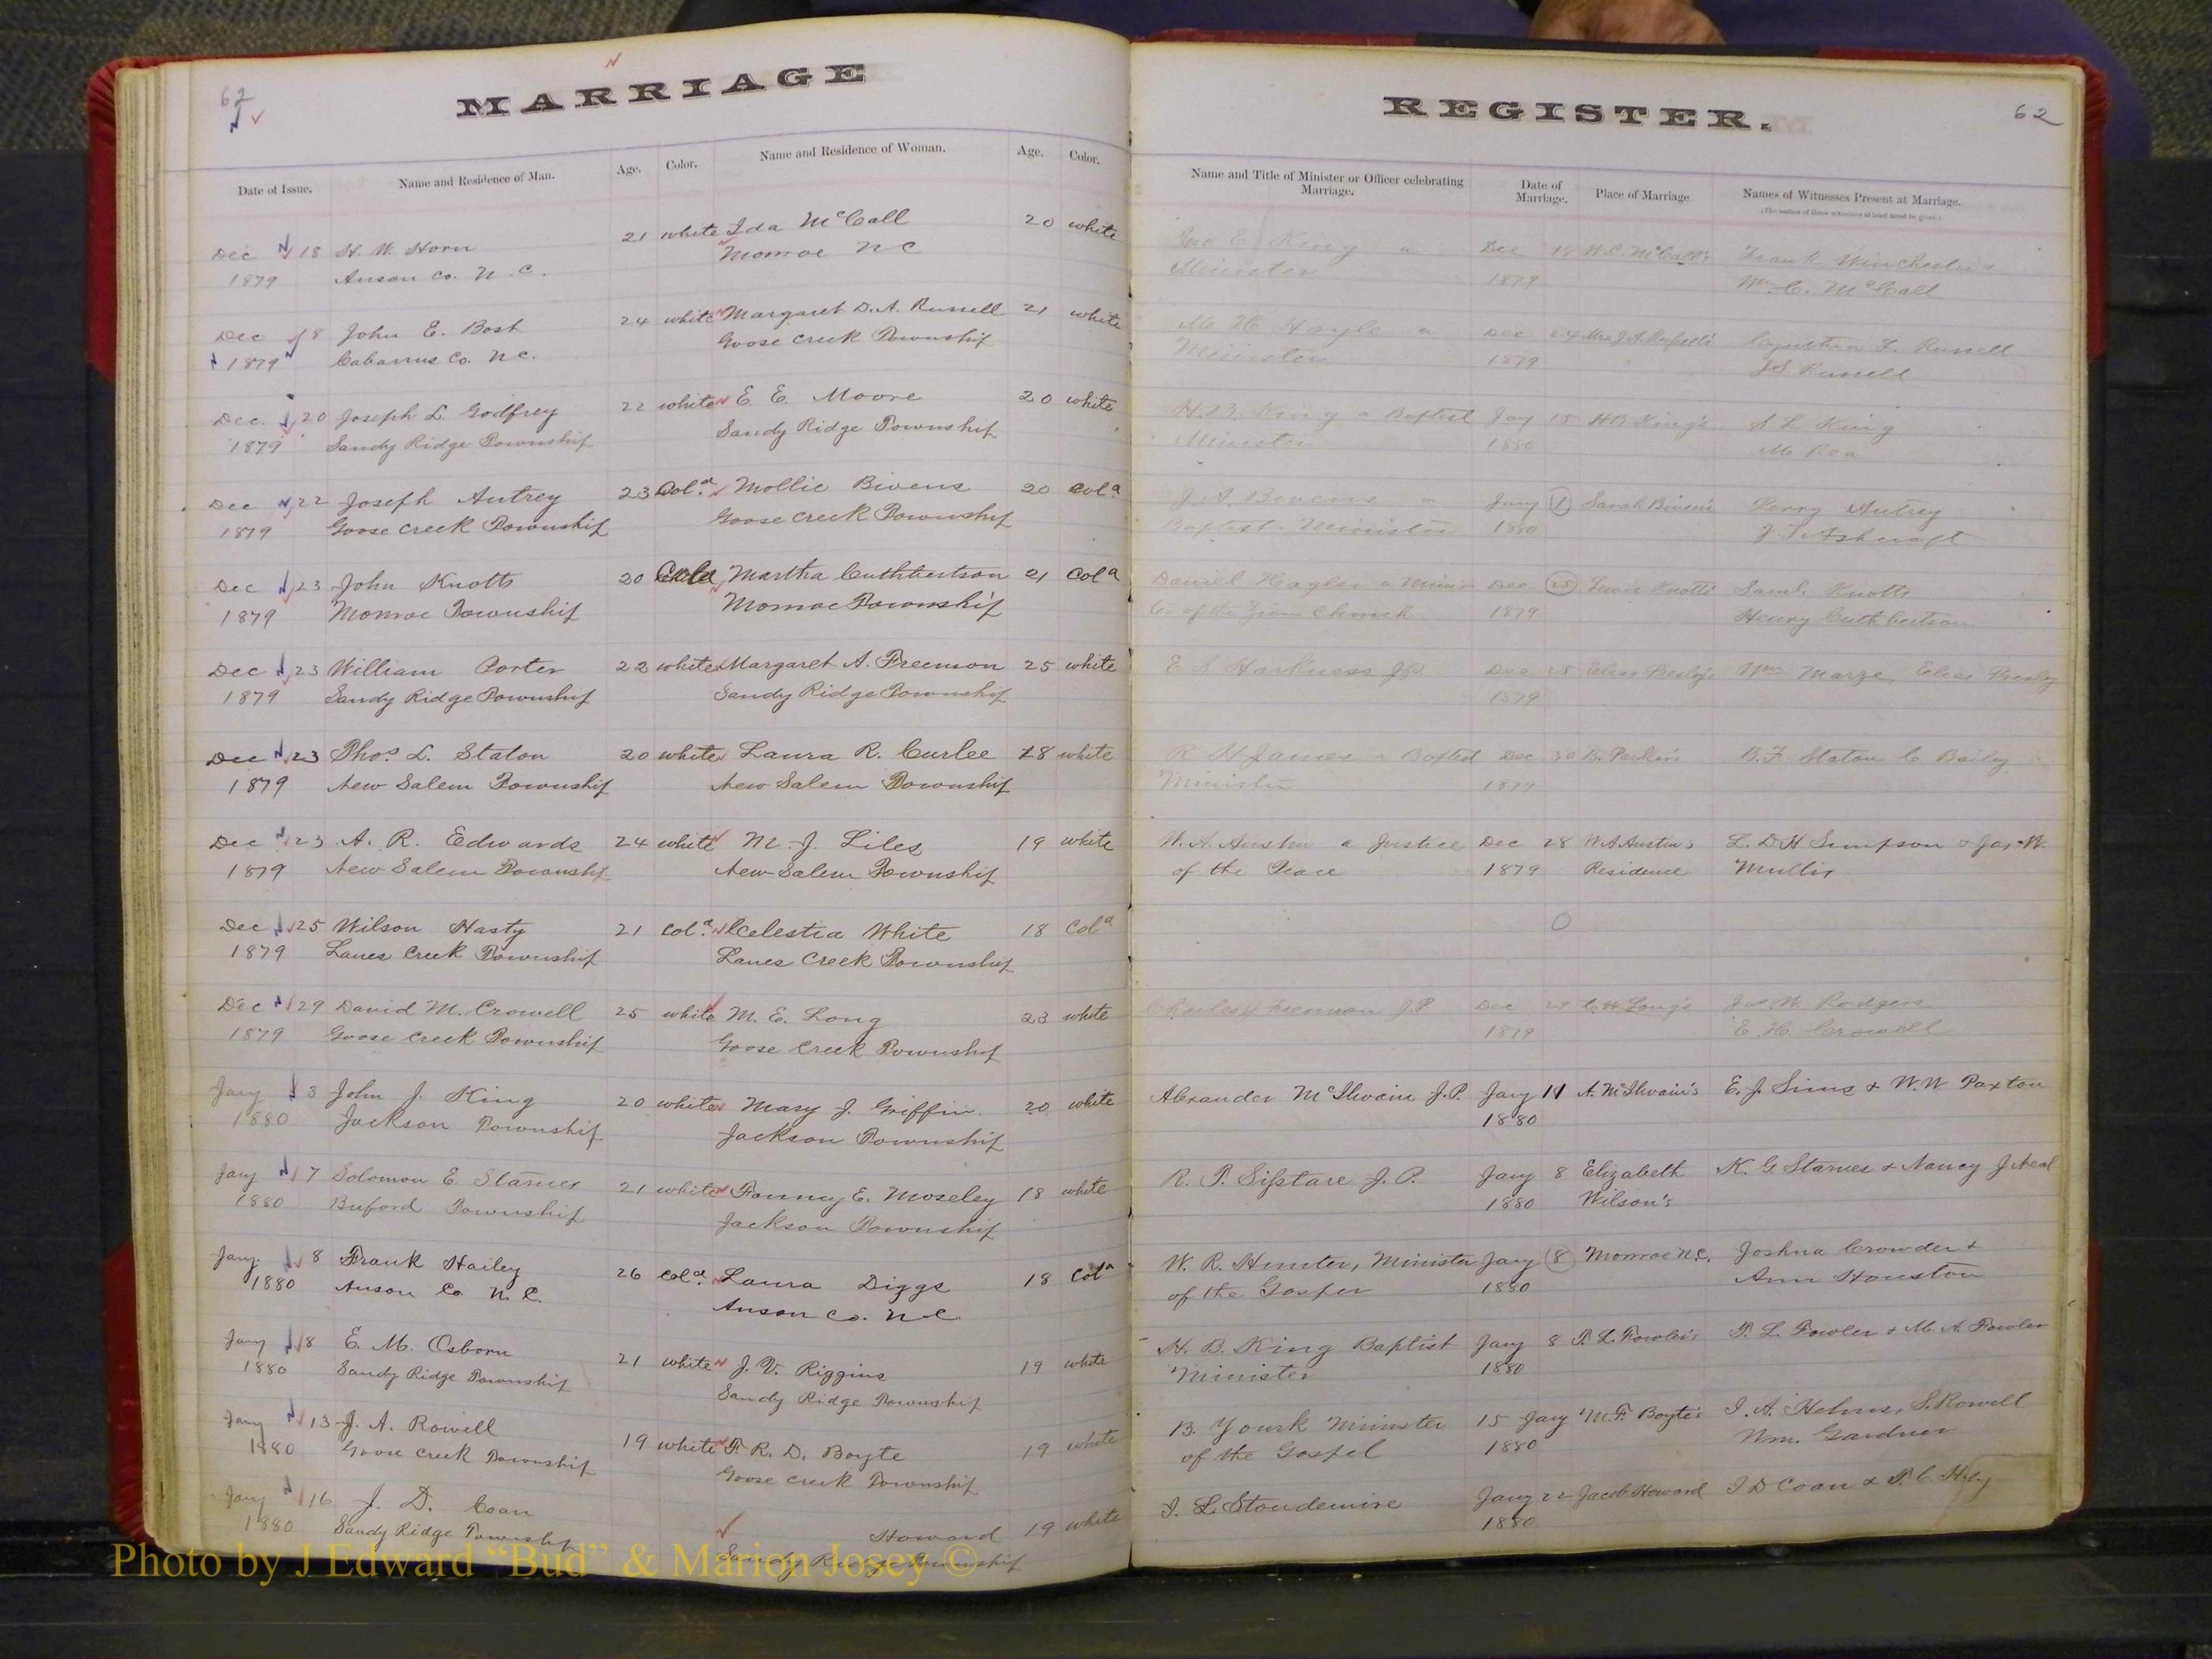 62
MARRIAGE
Date of Issue. Name and Residence of Man. Age. Color. Name and Residence of Woman. Age. Color.
Dec 18 H. W. Horn 21 white Ida McCall 20 white
1879 Anson Co. N. C. Monroe N C
Dec 18 John E. Bost 24 white Margaret D. A. Russell 21 white
1879 Cabarrus Co. N C. Goose Creek Township
Dec. 20 Joseph L. Godfrey 22 white E. E. Moore 20 white
1879 Sandy Ridge Township Sandy Ridge Township
Dec 22 Joseph Autrey 23 Col.d Mollie Bivens 20 Cold
1879 Goose Creek Township Goose Creek Township
Dec 23 John Knotts 20 Martha Cuthbertson 21 Cold
1879 Monroe Township Monroe Township
Dec 23 William Porter 22 white Margaret A. Freemon 25 white
1879 Sandy Ridge Township Sandy Ridge Township
Dec 23 Thos. L. Staton 20 white Laura R. Curlee 18 white
1879 New Salem Township New Salem Township
Dec 23 A. R. Edwards 24 white M. J. Liles 19 white
1879 New Salem Township New Salem Township
Dec 25 Wilson Hasty 21 Col.d Celestia White 18 Cold
1879 Lanes Creek Township Lanes Creek Township
Dec 29 David M. Crowell 25 white M. E. Long 23 white
1879 Goose Creek Township Goose Creek Township
Jany 3 John J. King 20 white Mary J. Griffin 20 white
1880 Jackson Township Jackson Township
Jany 7 Solomon E. Starnes 21 white Fanny E. Moseley 18 white
1880 Buford Township Jackson Township
Jany. 8 Frank Hailey 26 Cold. Laura Diggs 18 Cold
1880 Anson Co N. C. Anson Co. N C
Jany 8 E. M. Osborn 21 white J. V. Riggins 19 white
1880 Sandy Ridge Township Sandy Ridge Township
Jany 13 J. A. Rowell 19 white F. R. D. Boyte 19 white
1880 Goose Creek Township Goose Creek Township
Jany 16 J. D. Coan Howard 19 white
1880 Sandy Ridge Township Sandy Ridge Township
REGISTER.
62
Name and Title of Minister or Officer celebrating Marriage. Date of Marriage. Place of Marriage. Names of Witnesses Present at Marriage.
(The names of three witnesses at least must be given.)
Jno E. King a Dec 18 W. C. McCall's Frank Winchester
Minister 1879 Wm. C. McCall
M. H. Hoyle a Dec 24 Cynthia F. Russell
Minister 1879 J S Russell
H. B. King a Baptist Jay 15 H B King's S L King
Minister 1880 M. Rea
J. A. Bivens a Jany 1 Sarah Bivens Perry Autrey
Baptist Minister 1880 J. T. Ashcraft
Daniel Dec 25 Knotts Saml. Knotts
of the Zion Church 1879 Henry Cuthbertson
E S Harkness J P Dec 25 Elias Presley's Wm Elias Presley
1879
R H James a Baptist Dec 30 Parker's B. F Staton C Bailey
Minister 1879
W. A. Austin a Justice Dec 28 W A Austin's L. D H Simpson & Jas. W.
of the Peace 1879 Residence Mullis
Dec 29 C. W Long's Jas W. Rodgers
1879 E. H. Crowell
Alexander McIlwain J. P. Jany 11 A. McIlwain's E. J. Sims & W. W Paxton
1880
R. P. Sistare J. P. Jany 8 Elizabeth K. G. Starnes & Nancy J Neal
1880 Wilson's
W. R. Hunter, Minister Jany 8 Monroe N. C. Joshua Crowder &
of the Gosper 1880 Ann Houston
H. B. King Baptist Jany 8 T. L. Fowler's T. L. Fowler & M. A. Fowler
Minister 1880
B. Yourk Minister 15 Jany M. F. Boyte's I. A. Helms, S. Rowell
of the Gospel 1880 Wm. Gardner
Stoudemire Jany 22 Jacob Howard I D Coan &
1880
Photo by J Edward “Bud” & Marion Josey ©